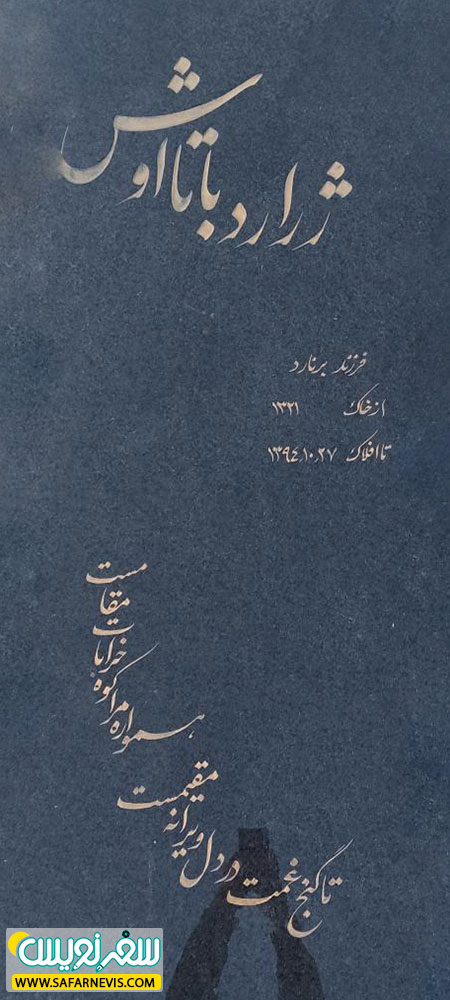 ژرارد باتااوش
فرزند برنارد
از خاک ۱۳۲۱
تا افلاک ۱۳۹۴.۱۰.۲۷
تا گنج غمت در دل ویرانه مقیمست
همواره مرا کوه خرابات مقامست
سفرنویس
WWW.SAFARNEVIS.COM